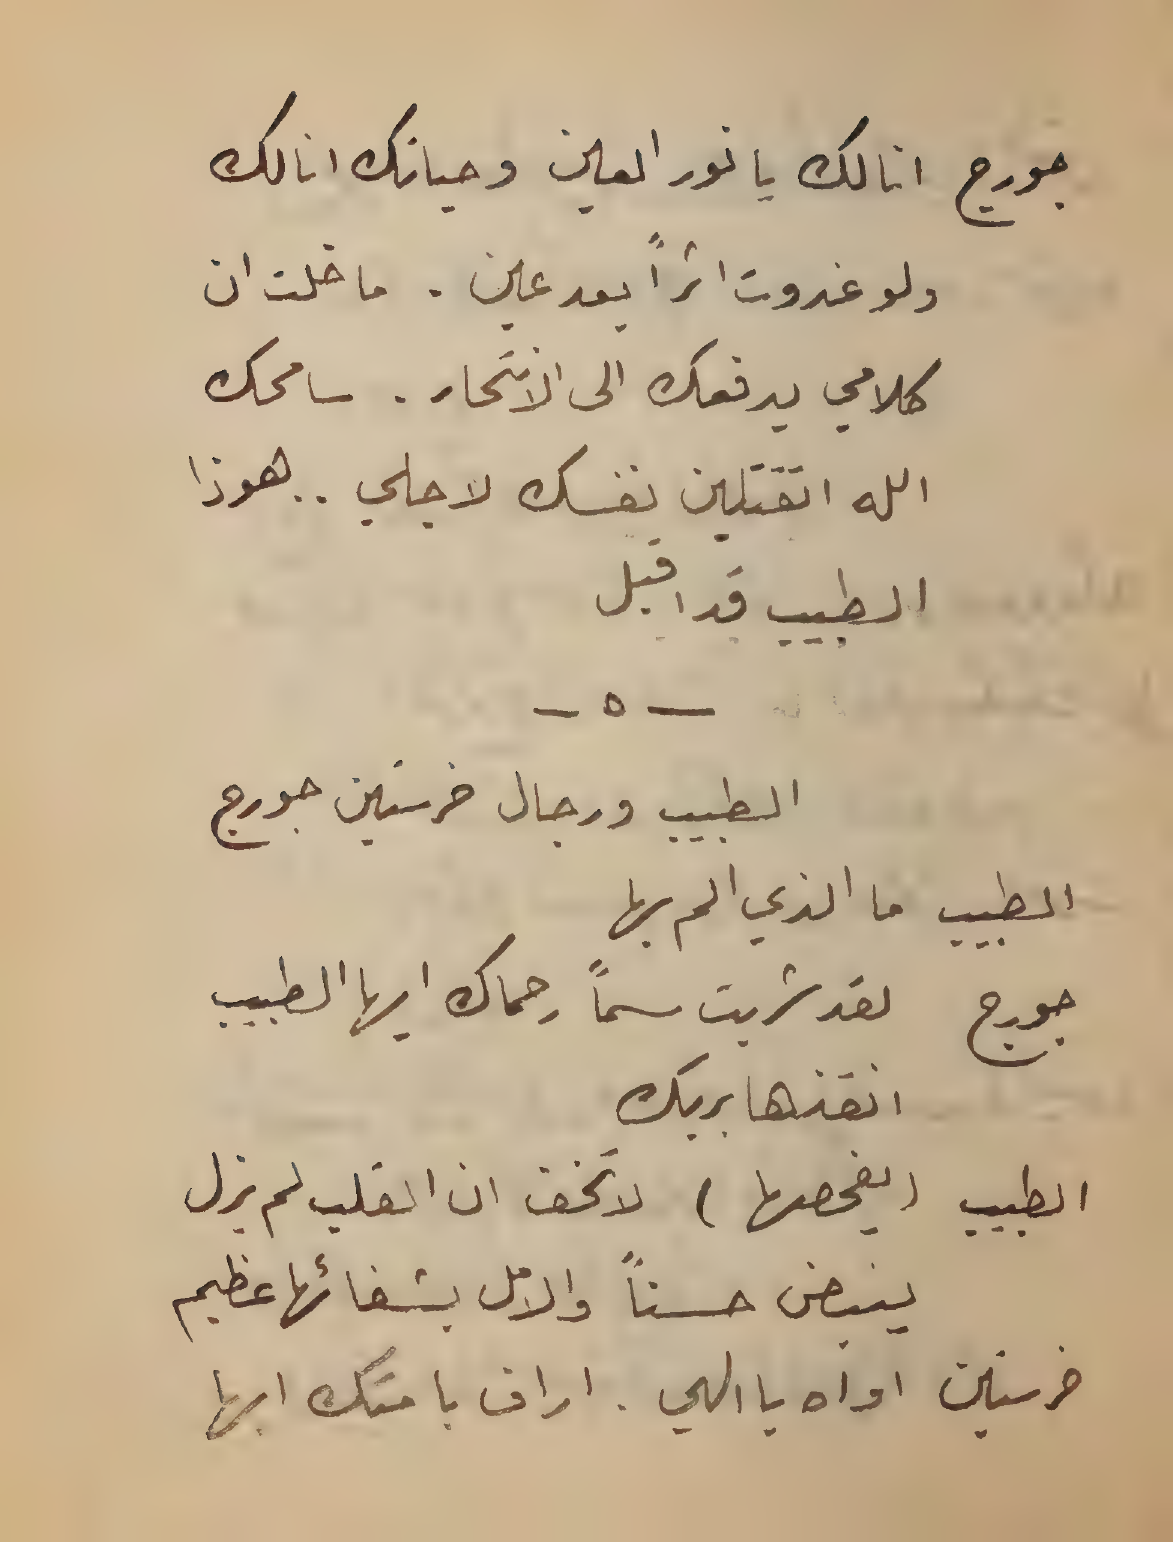 جورج انا لك يا نور العين وحياتك انا لك
ولو غدوت اثراً بعد عين . ما خلت ان
كلامي يدفعك الى الانتحار . سامحك
الله اتقتلين نفسك لاجلي .. هوذا
الطبيب قد اقبل
— ٥ —
الطبيب ورجال خرستين جورج
الطبيب ما الذي الم بها
جورج لقد شربت سماً رحماك ايها الطبيب
انقذها بربك
الطبيب (يفحصها) لا تخف ان القلب لم يزل
ينبض حسناً والامل بشفائها عظيم
خرستين اواه يا الهي . اراف بامتك ايها